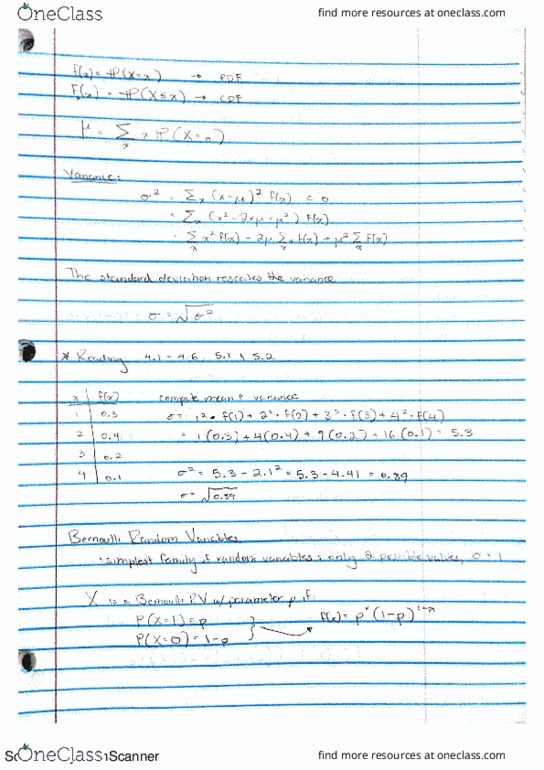 OneClass find more resources at oneclass.com
f(x) = P(X=x) → PDF
Fx(x) = P(X≤x) → CDF
μ = Σx x P(X=x)
Variance:
σ² = Σx (x-μ)² f(x) = 0
= Σx (x² - 2xμ + μ²) f(x)
= Σx x² f(x) - 2μ Σx x f(x) + μ² Σx f(x)
The standard deviation rescales the variance
σ = √σ²
* Reading 4.1 - 4.6, 5.1, 5.2
x f(x) compute mean + variance
1 0.3 σ = 1² • f(1) + 2² • f(2) + 3² • f(3) + 4² • f(4)
2 0.4 = 1(0.3) + 4(0.4) + 9(0.2) + 16(0.1) = 5.3
3 0.2
4 0.1 σ² = 5.3 - 2.1² = 5.3 - 4.41 = 0.89
σ = √0.89
Bernoulli Random Variables
simplest family of random variables: only 2 possible values, 0 + 1
X is a Bernoulli RV w/ parameter p if:
P(X=1) = p f(x) = pˣ (1-p)¹⁻ˣ
P(X=0) = 1-p
OneClass Scanner find more resources at oneclass.com